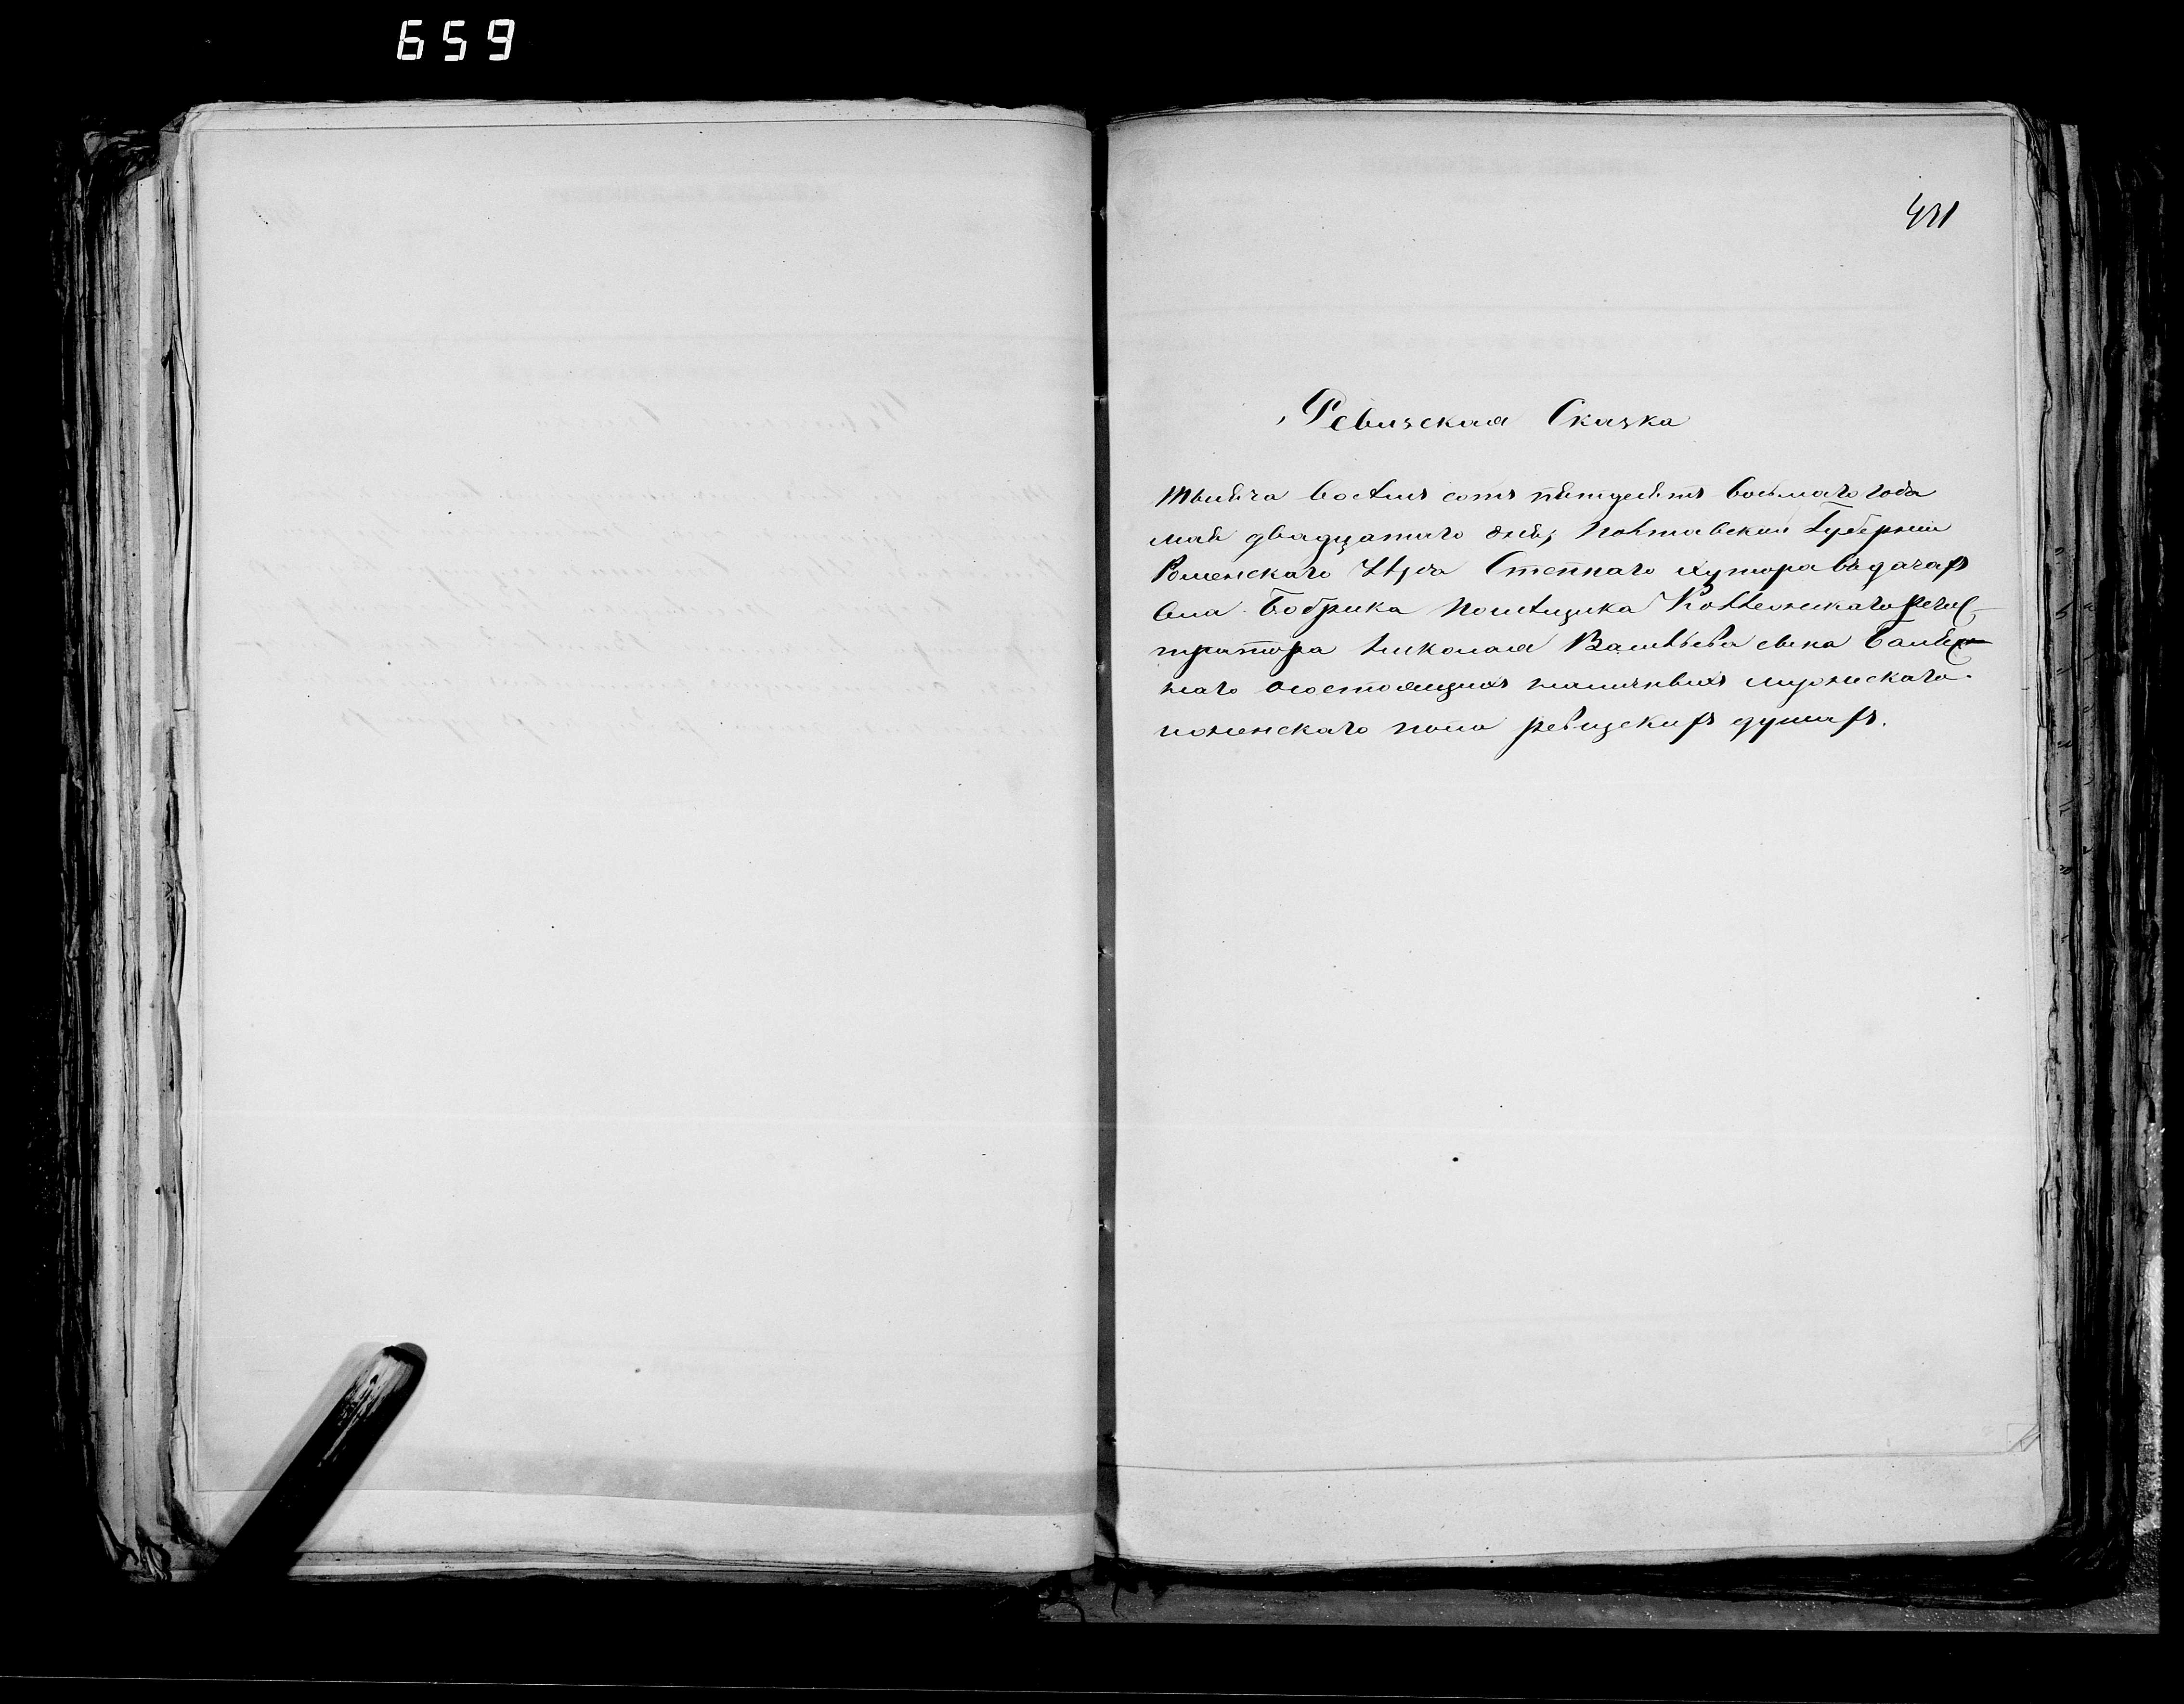 659
431
Ревизская Сказка
тысяча восемь сотъ пятдесятъ восьмаго года
мая двадцатаго дня, Полтавской Губерніи
Роменскаго Уѣзда Степнаго хутора въ дачахъ
села Бобрика помѣщика Коллежскаго регис-
тратора Николая Васильева сына
наго о состоящихъ наличныхъ мужескаго
и женскаго пола ревизскихъ душахъ.